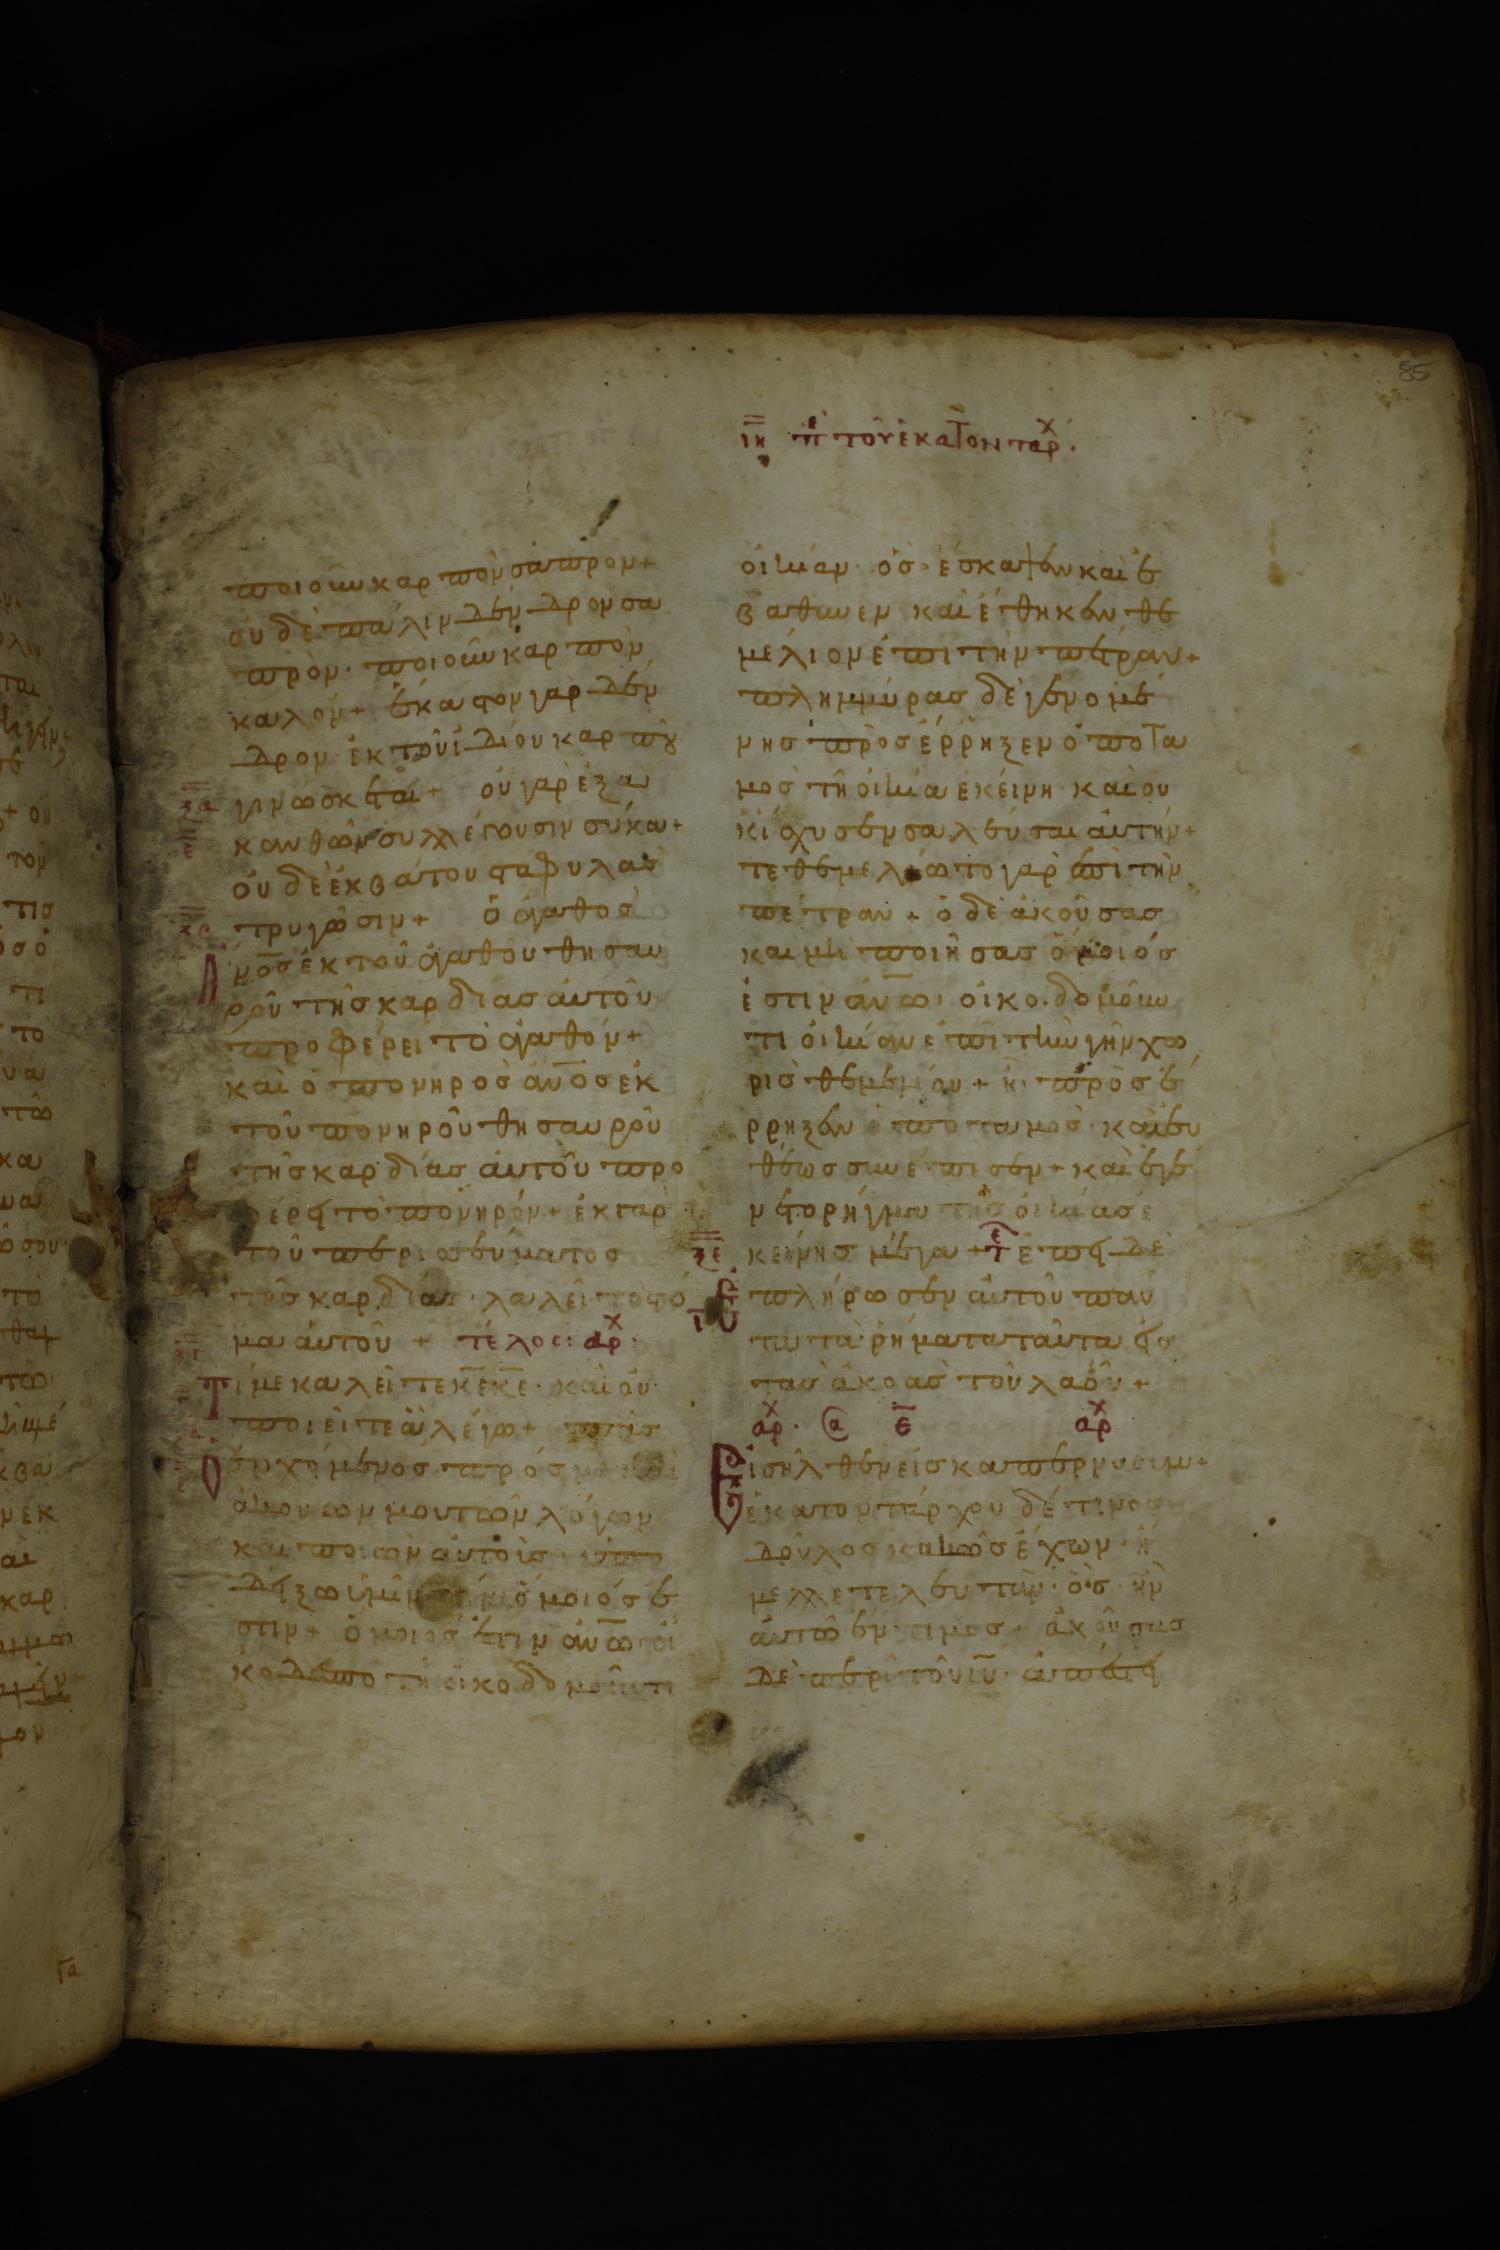 ιη π τοῦ ἑκατονταρχ.
ποιοῦν καρπὸν σαπρον+
οὐδὲ πάλιν δένδρον σα
πρὸν· ποιοῦν καρπὸν
καλόν+ ἕκαστον γὰρ δέν
δρον ἐκ τοῦ ἰδίου καρποῦ
γινώσκεται+ οὐ γὰρ ἐξ α
κανθῶν συλλέγουσιν σύκα+
οὐδὲ ἐκ βάτου σταφυλὰς
τρυγῶσιν+ ὁ ἀγαθὸς
ἄνος ἐκ τοῦ ἀγαθοῦ θησαυ
ροῦ τῆς καρδίας αὐτοῦ
προφέρει τὸ ἀγαθόν+
καὶ ὁ πονηρὸς ἄνος ἐκ
τοῦ πονηροῦ θησαυροῦ
τῆς καρδίας αὐτοῦ προ
φέρει τὸ πονηρόν+ ἐκ γὰρ
τοῦ περισσεύματος
τῆς καρδίας λαλεῖ τὸ στό
μα αὐτοῦ + τέλος: αρχ:
Τί με καλεῖτε κε κε· καὶ οὐ
ποιεῖτε ἃ λέγω+ πᾶς
ὁ ἐρχόμενος πρός με καὶ
ἀκούων μου τῶν λόγων
καὶ ποιῶν αὐτοὺς· ὑπο
δείξω ὑμῖν τίνι ὅμοιός ἐ
στιν+ ὅμοιός ἐστιν ἀνω οἰ
κοδομοῦντι
οἰκίαν· ὃς· ἔσκαψεν καὶ ἐ
βάθυνεν καὶ ἔθηκεν θε
μέλιον ἐπὶ τὴν πέτραν+
πλημμύρας δὲ γενομέ
νης προσέρρηξεν ὁ ποτα
μὸς τῇ οἰκίᾳ ἐκείνῃ καὶ οὐ
κ ἴσχυσεν σαλεῦσαι αὐτήν+
τεθεμελίωτο γὰρ ἐπὶ τὴν
πέτραν + ὁ δὲ ἀκούσας
καὶ μὴ ποιήσας ὅμοιός
ἐστιν ἀνω· οἰκοδομοῦν
τι οἰκίαν ἐπὶ τὴν γῆν χω
ρὶς θεμελίου+ ᾗ προσέ
ρρηξεν ὁ ποταμὸς· καὶ εὐ
θέως συνέπεσεν+ καὶ ἐγέ
νετο ρῆγμα τῆς οἰκίας ἐ
κείνης μέγα + τε ἐπεὶ δὲ
πλήρωσεν αὐτοῦ πάν
τα τὰ ῥήματα ταῦτα εἰς
τὰς ἀκοὰς τοῦ λαοῦ+
αρχ. ε αρχ
Εἰσῆλθεν εἰς καπερναουμ+
ἑκατοντάρχου δέ τινος
δοῦλος κακῶς ἔχων· ἤ
μελλε τελευτᾶν· ὃς ἦν
αὐτῷ ἔντιμος+ ἀκούσας
δὲ περὶ τοῦ ιυ ἀπέστει